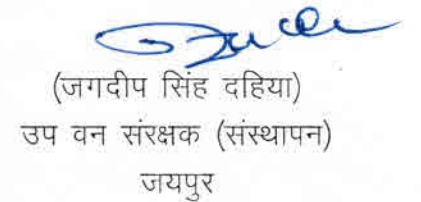 (जगदीप सिंह दहिया)
उप वन संरक्षक (संस्थापन)
जयपुर